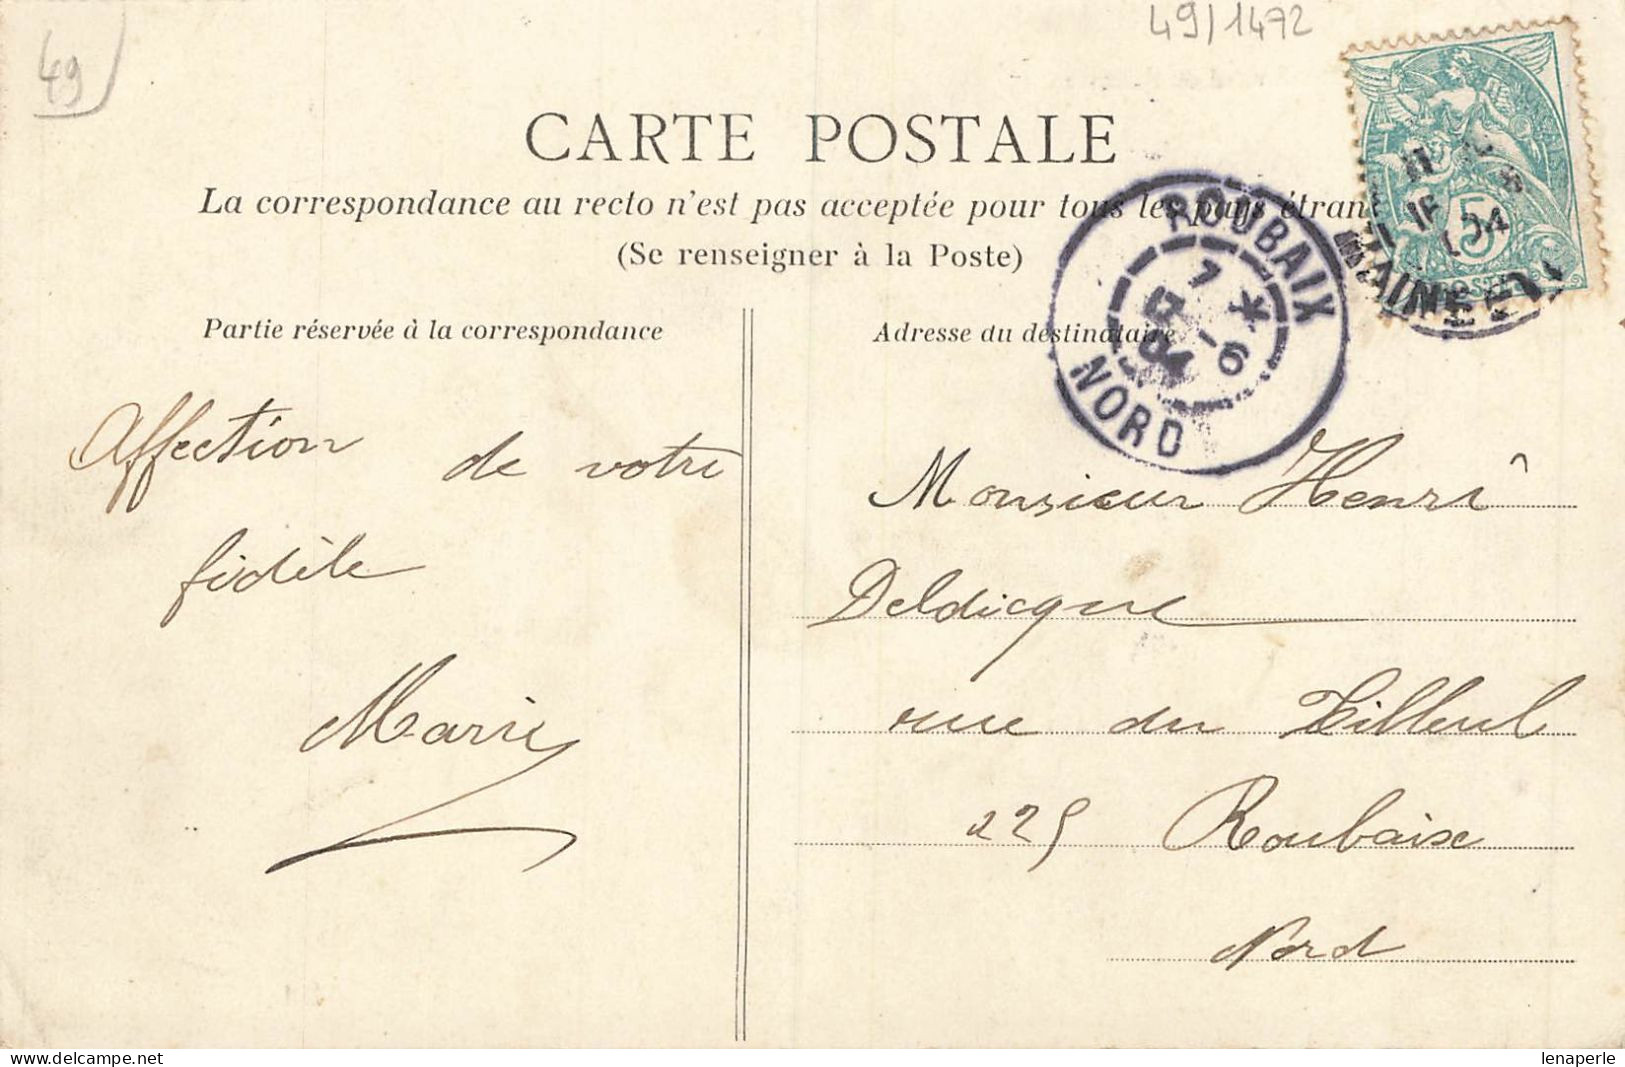 49/1472
49
CARTE POSTALE
La correspondance au recto n'est pas acceptée pour tous les pays étran
(Se renseigner à la Poste)
Partie réservée à la correspondance
Affection de votre
fidèle
Marie
Adresse du destinataire
Monsieur Henri
Deldicque
rue du Tilleul
225 Roubaix
Nord
ROUBAIX
7 *
13 -6
04
NORD
5
04
MAINE-E
lenaperle